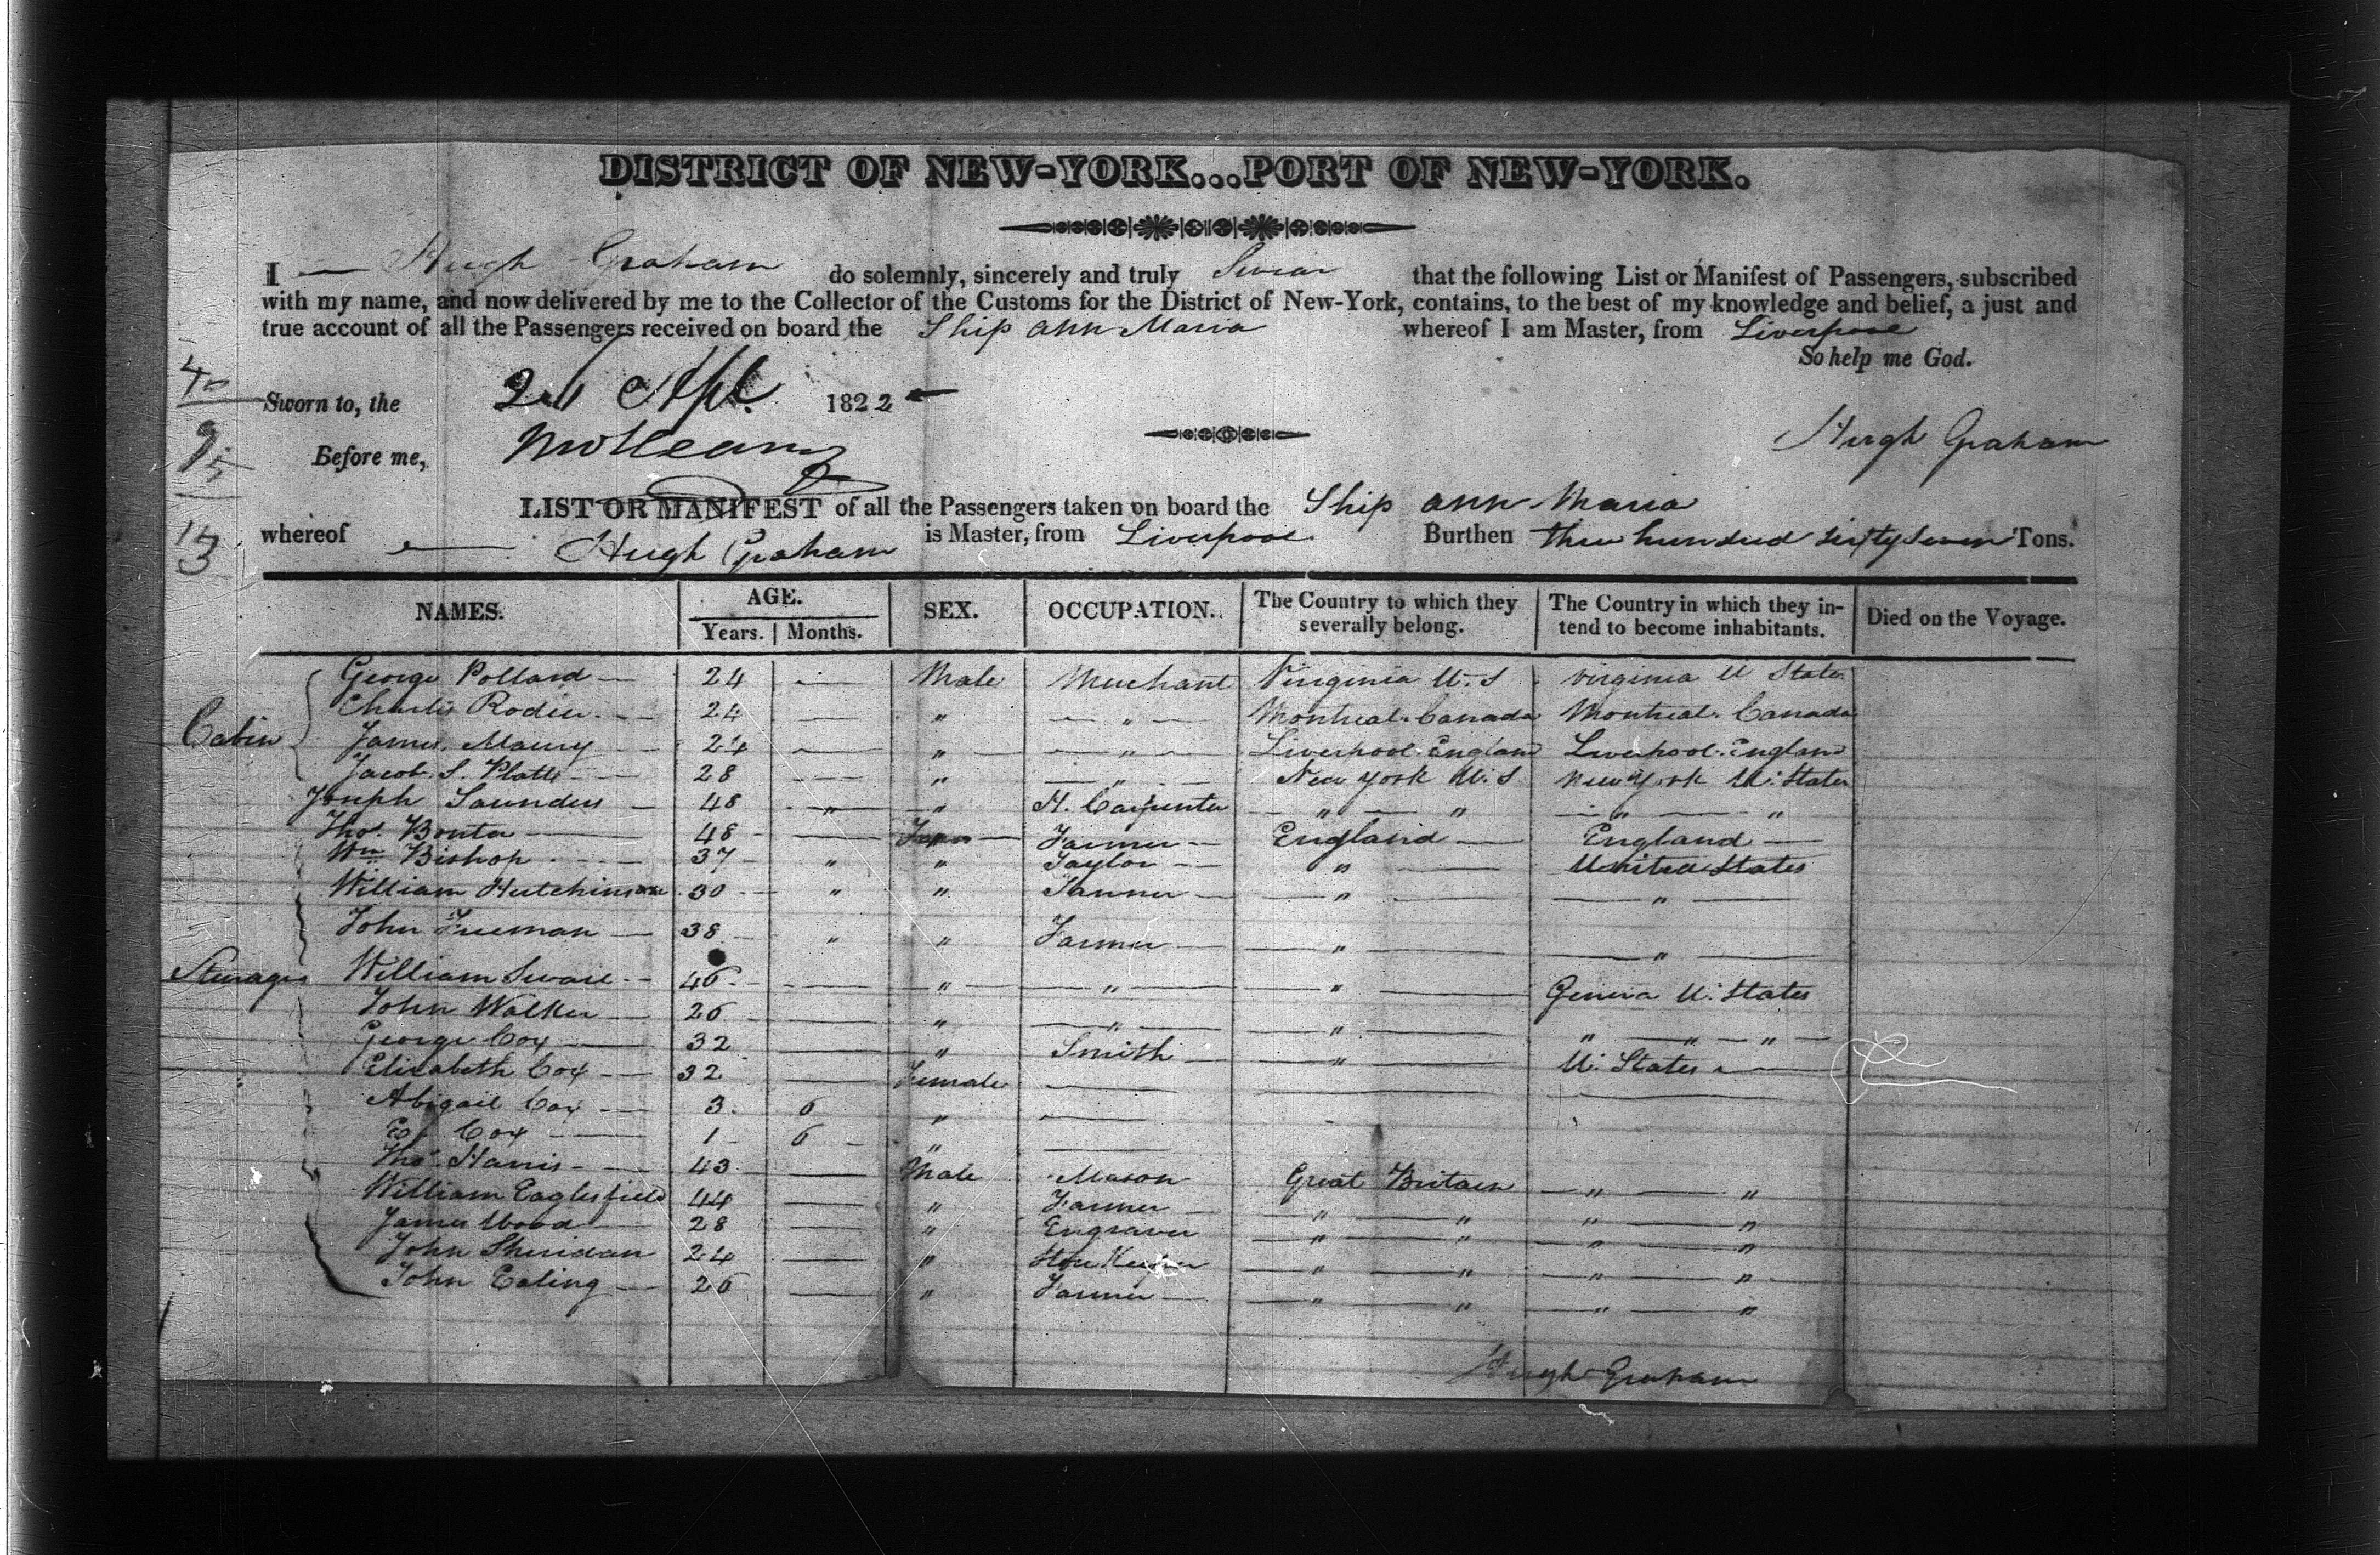 DISTRICT OF NEW-YORK...PORT OF NEW-YORK.
I — Hugh Graham do solemnly, sincerely and truly Swear that the following List or Manifest of Passengers, subscribed
with my name, and now delivered by me to the Collector of the Customs for the District of New-York, contains, to the best of my knowledge and belief, a just and
true account of all the Passengers received on board the Ship Ann Maria whereof I am Master, from Liverpool
So help me God.
Sworn to, the Apl. 1822
Before me,
Hugh Graham
LIST OR MANIFEST of all the Passengers taken on board the Ship Ann Maria
whereof Hugh Graham is Master, from Liverpool Burthen three hundred sixty seven Tons.
NAMES. AGE. Years. Months. SEX. OCCUPATION. The Country to which they severally belong. The Country in which they intend to become inhabitants. Died on the Voyage.
George Pollard — 24 — Male Merchant Virginia U.S. Virginia U States
Charles Rodier — 24 — " — " — Montreal Canada Montreal Canada
Cabin James Maury — 24 — " — " — Liverpool England Liverpool England
Jacob S. Platt — 28 — " — " — New York U.S New York U. States
Joseph Saunders — 48 " " H. Carpenter " " " "
Thos. Bonter — 48 — Farmer — England — England —
Wm Bishop — 37 " " Taylor — " — United States
William Hutchinson 30 " " Tanner — " — — " —
John Freeman — 38 " " Farmer — " — — " —
Steerage William Swail 46 — " — " — " — Geneva U. States
John Walker — 26 — " — " — " — " — " — " —
George Cox — 32 — " Smith — " — U. States
Elizabeth Cox — 32 — Female —
Abigail Cox — 3 6 " —
Cox — 1 6 " —
Thos. Harris — 43 — Male Mason Great Britain — " — "
William Eaglesfield 44 — " Farmer — " — " " — "
James Wood 28 — " Engraver " — " " — "
John Sheridan 24 — " Store Keeper " — " — " — "
John Ealing — 26 — " Farmer — " — " — " — "
Hugh Graham
40
95
13